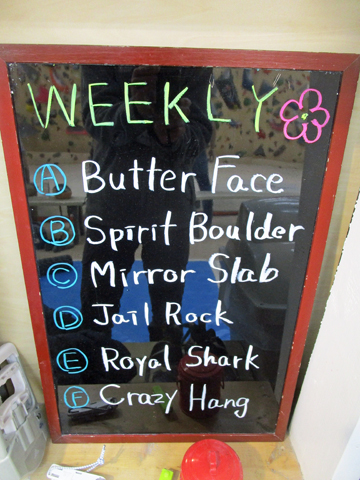 WEEKLY
Ⓐ Butter Face
Ⓑ Spirit Boulder
Ⓒ Mirror Slab
Ⓓ Jail Rock
Ⓔ Royal Shark
Ⓕ Crazy Hang